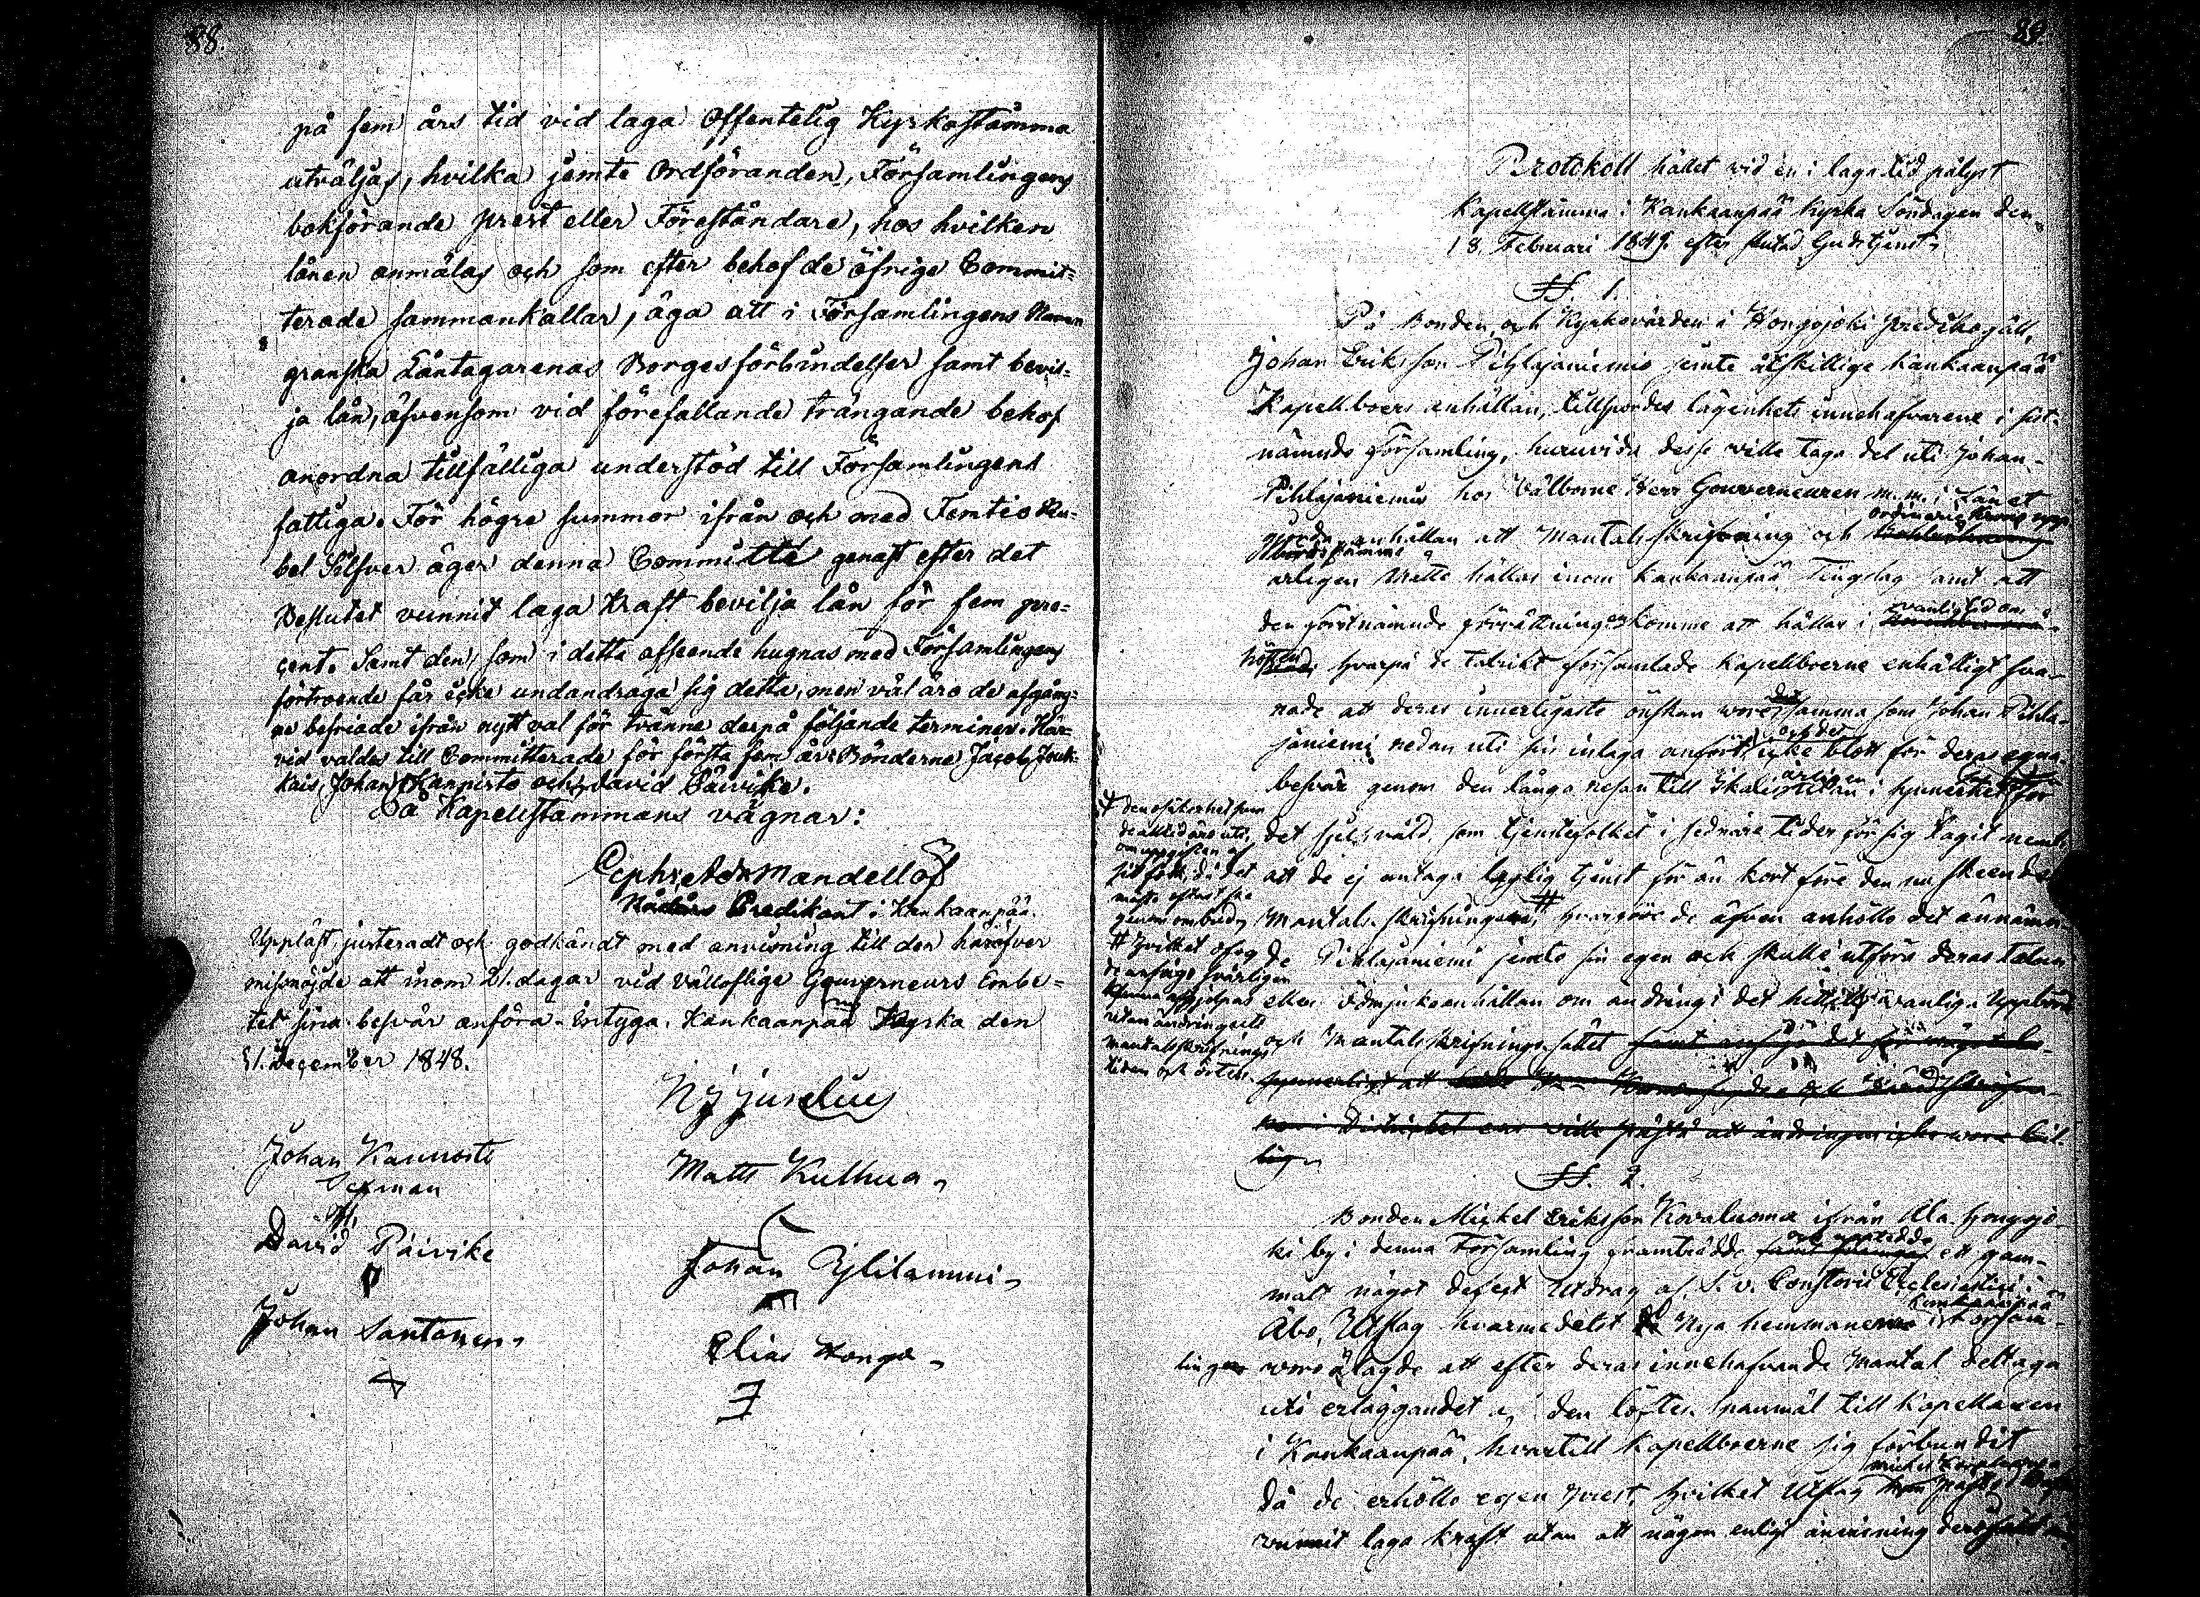 88.
på fem års tid vid laga Offentelig Kyrkostämma
utväljas, hvilka jemte Ordföranden, Församlingens
bokförande prest eller Föreståndare, hos hvilken
lånen anmälas och som efter behof de öfrige Commit=
terade sammankallar, äga att i Församlingens Namn
granska Låntagarenas Borgesförbindelser samt bevil=
ja lån, äfvensom vid förefallande trängande behof
anordna tillfälliga understöd till Församlingens
fattiga. För högre summor ifrån och med Femtio Ru=
bel Silfver äger denna Committé genast efter det
Beslutet vunnit laga kraft bevilja lån för fem pro=
cent. Samt den, som i detta afseende hugnas med Församlingens
förtroende får icke undandraga sig detta, men väl äro de afgång=
ne befriade ifrån nytt val för tvänne derpå följande terminer. Här=
vid valdes till Committerade för första fem år: Bönderne Jacob Jouk=
kais, Johan Kannisto och David Päivike.
På Kapellstämmans vägnar:
Ephr. Adr. Mandellöf
Nådårs Predikant i Kankaanpää.
Uppläst, justeradt och godkändt med anvisning till den häröfver
missnöjde att inom 21. dagar vid Välloflige Gouverneurs Embe=
tet sina besvär anföra. Intyga. Kankaanpää Kyrka den
31. December 1848.
Johan Kannisto
Sexman
David Päivike
Johan Santanen
Matts Kulhua
Johan Ylilammi
Elias Hongo
89.
Protokoll hållet wid en i laga tid pålyst
Kapellstämma i Kankaanpää Kyrka Söndagen den
18. Februari 1849. efter slutad Gudstjenst.
§. 1.
På Bonden och Kyrkovärden i Hongojoki predikogäll,
Johan Eriksson Pihlajaniemis jemte åtskillige Kankaanpää
Kapellboers anhållan, tillspordes lägenhets innehafvarene i sist=
nämnde Församling, huruvida desse ville taga del uti Johan
Pihlajaniemis hos Välborne Herr Gouverneuren m.m. i Länet
gjorda anhållan att Mantals skrifvning och
ordinarie Krono upp
bördsstämma
årligen måtte hållas inom Kankaanpää Tingslag samt att
den förstnämnde förrättningen komme att hållas i
vanlig tid om
hösten, hvarpå de talrikt församlade Kapellboerne enhälligt sva=
rade att deras innerligaste önskan wore det samma som Johan Pihla=
janiemi redan uti sin inlaga anfört och det icke blott för deras egna
besvär genom den långa resan till Ikalis årligen utan i synnerhet för
det sjelfsvåld, som tjenstefolket i sednare tider för sig tagit neml.
att de ej antaga laglig tjenst för än kort före den nu skeende
Mantals skrifningen, # hvarföre de äfven anhöllo det ännämn=
de Pihlajaniemi jemte sin egen och skulle utföra deras talan
eller ödmjuka anhållan om ändring i det hittills vanliga Uppbörds
och Mantals skrifnings sättet samt
# hvilket ofog
de anhöriga svårligen
kunna afhjelpas
utan ändring uti
mantalsskrifnings
tiden och orten.
§. 2.
Bonden Mickel Eriksson Kovaluoma ifrån Ala Hongojo=
ki by i denna Församling framträdde och uppvisade ett gam=
malt något defect Utdrag af S. v. Consistorii Ecclesiastici i
Åbo, Utslag hvarmedelst Nya hemmanen i Kankaanpää Församl=
lingen woro ålagde att efter deras innehafvande Mantal deltaga
uti erläggandet af den löftes spannmål till Kapellanen
i Kankaanpää, hvartill Kapellboerne sig förbundit
då de erhöllo egen prest, hvilket Utslag
vunnit laga kraft utan att någon enligt anvisning